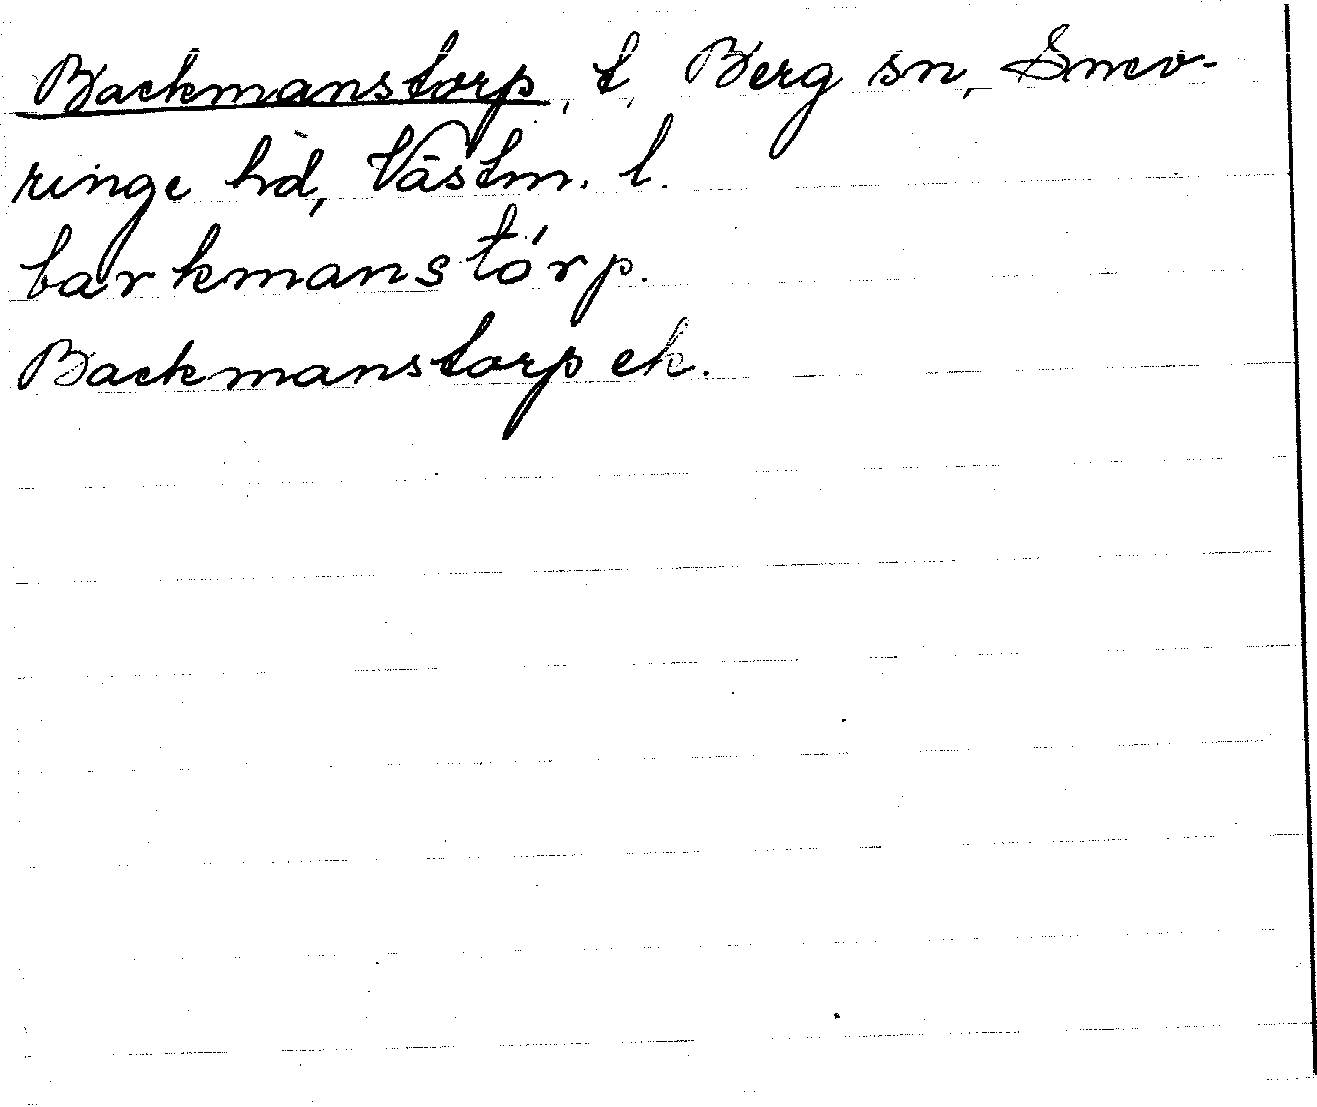 Backmanstorp, t, Berg sn, Snev-
ringe hd, Västm. l.
barkmanstórp.
Backmanstorp ek.